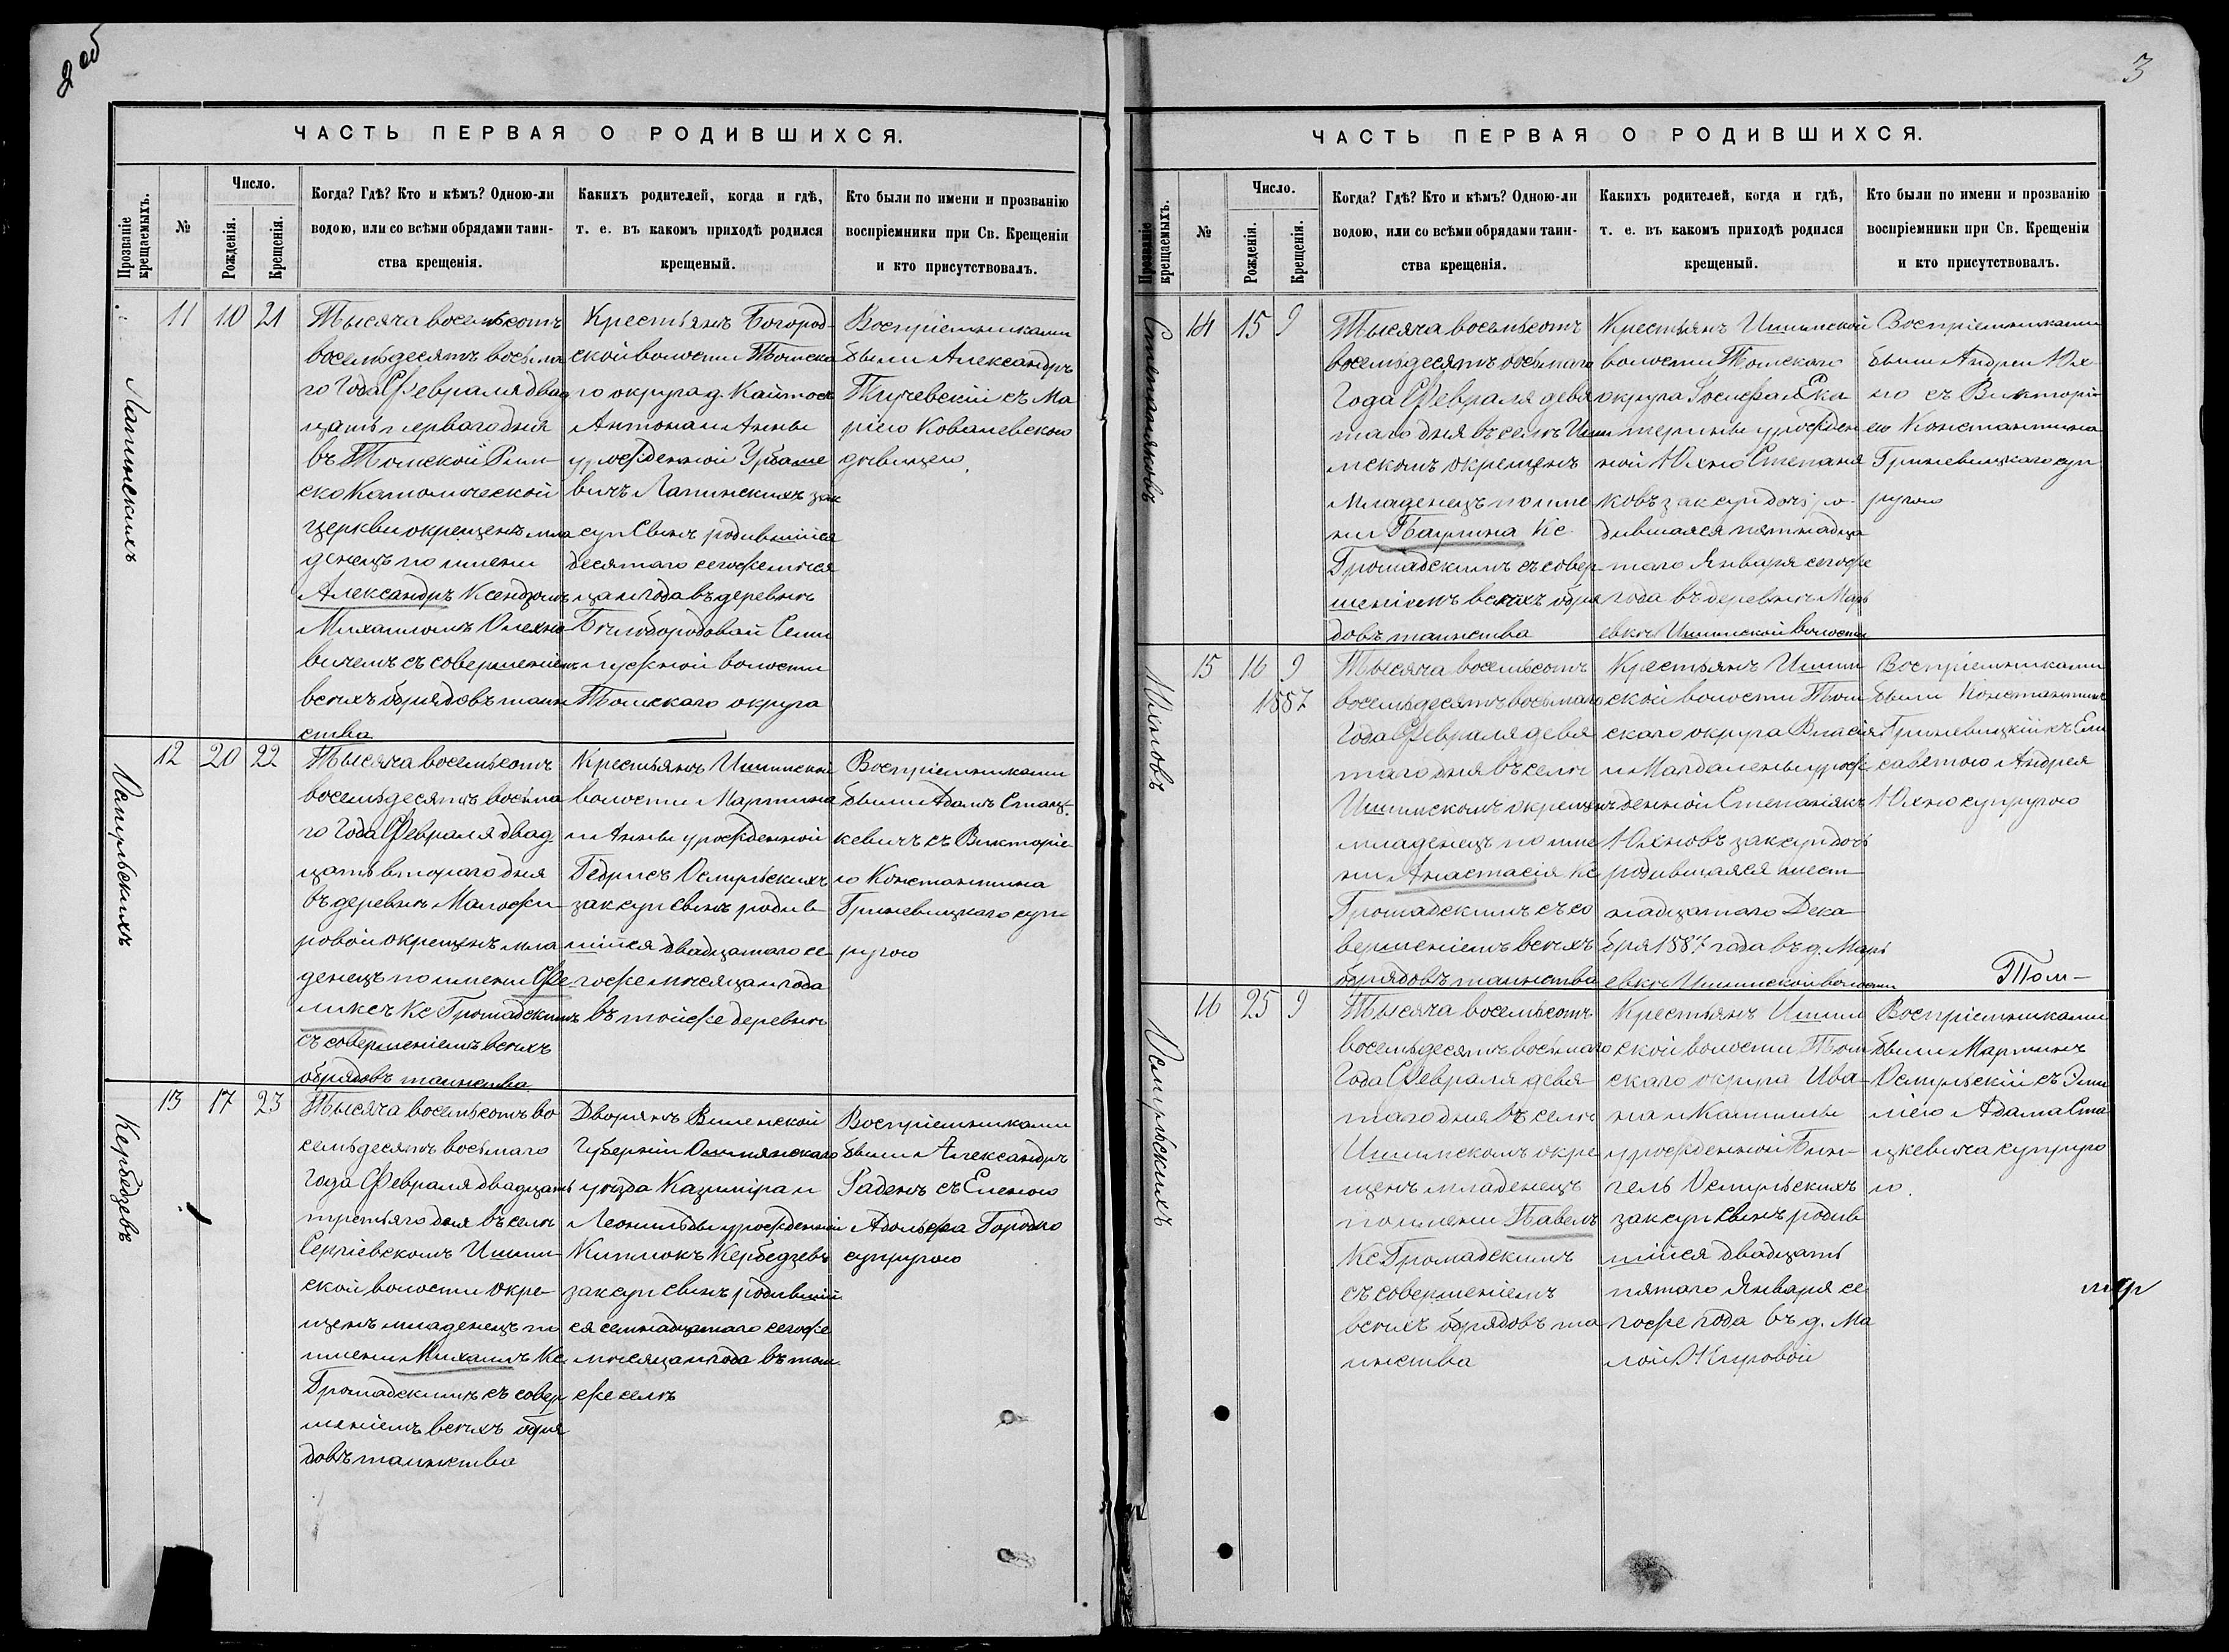 2 об
ЧАСТЬ ПЕРВАЯ О РОДИВШИХСЯ.
Прозваніе крещаемыхъ.
№
Число.
Рожденія.
Крещенія.
Когда? Гдѣ? Кто и кѣмъ? Одною-ли
водою, или со всѣми обрядами таин-
ства крещенія.
Какихъ родителей, когда и гдѣ,
т. е. въ какомъ приходѣ родился
крещеный.
Кто были по имени и прозванію
воспріемники при Св. Крещеніи
и кто присутствовалъ.
Лапинскихъ
11 10 21
Тысяча восемьсотъ
восемьдесятъ восьма
го Года Февраля двад
цать перваго дня
въ Томской Рим-
ско Католической
церкви окрещенъ мла
денецъ по имени
Александръ Ксендзомъ
Михаиломъ Олехно
вичемъ съ совершеніемъ
всѣхъ обрядовъ таин
ства
Крестьянъ Богород-
ской волости Томска
го округа д.
Антона и Анны
урожденной Урбане
вичъ Лапинскихъ зак
суп Сынъ родившійся
десятаго сегоже мѣся
ца и года въ деревнѣ
Бѣлобородовой Семи
лужной волости
Томскаго округа
Воспріемниками
были Александръ
съ Ма
ріею Ковалевскою
дѣвицею.
Осипрьскихъ
12 20 22
Тысяча восемьсотъ
восемьдесятъ восьма
го Года Февраля двад
цать втораго дня
въ деревнѣ Маложи
ровой окрещенъ мла
денецъ по имени Фе
ликсъ Кс Громадскимъ
съ совершеніемъ всѣхъ
обрядовъ таинства
Крестьянъ Ишимской
волости Мартина
и Анны урожденной
Гедрисъ Осипрьскихъ
зак суп Сынъ родив
шійся двадцатаго се
гоже мѣсяца и года
въ тойже деревнѣ
Воспріемниками
были Адамъ Станц-
кевичъ съ Викторіе
ю Константина
Гриневицкаго суп
ругою
Кербедзевъ
13 17 23
Тысяча восемьсотъ во
семьдесятъ восьмаго
Года Февраля двадцать
третьяго дня въ селѣ
Сергіевскомъ Ишим-
ской волости окре
щенъ младенецъ по
имени Михаилъ Кс
Громадскимъ съ совер
шеніемъ всѣхъ обря
довъ таинства
Дворянъ Виленской
Губерніи Ошмянскаго
уѣзда Казиміра и
Леонильды урожденной
Кербедзевъ
зак суп Сынъ родившій
ся семнадцатаго сегоже
мѣсяца и года въ том
же селѣ
Воспріемниками
были Александръ
Гаденъ съ Еленою
Адольфа Городко
супругою
3
ЧАСТЬ ПЕРВАЯ О РОДИВШИХСЯ.
Прозваніе крещаемыхъ.
№
Число.
Рожденія.
Крещенія.
Когда? Гдѣ? Кто и кѣмъ? Одною-ли
водою, или со всѣми обрядами таин-
ства крещенія.
Какихъ родителей, когда и гдѣ,
т. е. въ какомъ приходѣ родился
крещеный.
Кто были по имени и прозванію
воспріемники при Св. Крещеніи
и кто присутствовалъ.
Степаняковъ
14 15 9
Тысяча восемьсотъ
восемьдесятъ восьмаго
Года Февраля девя
таго дня въ селѣ Иши
мскомъ окрещенъ
Младенецъ по име
ни Паулина Кс
Громадскимъ съ совер
шеніемъ всѣхъ обря
довъ таинства
Крестьянъ Ишимской
волости Томскаго
округа Іосифа и Ека
терины урожден
ной Юхно Степаня
ковъ зак суп дочь ро-
дившаяся пятнадца
таго Января сегоже
года въ деревнѣ Марь
евкѣ Ишимской волости
Воспріемниками
были Андрей Юх
но съ Викторі
ею Константина
Гриневицкаго суп
ругою
Юхновъ
15 16 9
1887
Тысяча восемьсотъ
восемьдесятъ восьмаго
Года Февраля девя
таго дня въ селѣ
Ишимскомъ окрещенъ
младенецъ по име
ни Анастасія Кс
Громадскимъ съ со
вершеніемъ всѣхъ
обрядовъ таинства
Крестьянъ Ишим
ской волости Том
скаго округа Власія
и Магдалены урож
денной Степанякъ
Юхновъ зак суп дочь
родившаяся шест
надцатаго Дека
бря 1887 года въ д. Марь
евкѣ Ишимской волости
Воспріемниками
были Константинъ
Гриневицкій съ Ели
саветою Андрея
Юхно супругою
Том-
Осипрьскихъ
16 25 9
Тысяча восемьсотъ
восемьдесятъ восьмаго
Года Февраля девя
таго дня въ селѣ
Ишимскомъ окре
щенъ младенецъ
по имени Павелъ
Кс Громадскимъ
съ совершеніемъ
всѣхъ обрядовъ та
инства
Крестьянъ Ишим
ской волости Том
скаго округа Ива
на и Камиллы
урожденной Бин-
гель Осипрьскихъ
зак суп Сынъ родив
шійся двадцать
пятаго Января се
гоже года въ д. Ма
лой Жировой
Воспріемниками
были Мартинъ
Осипрьскій съ Эми
ліею Адама Ста
цкевича супруго
ю.